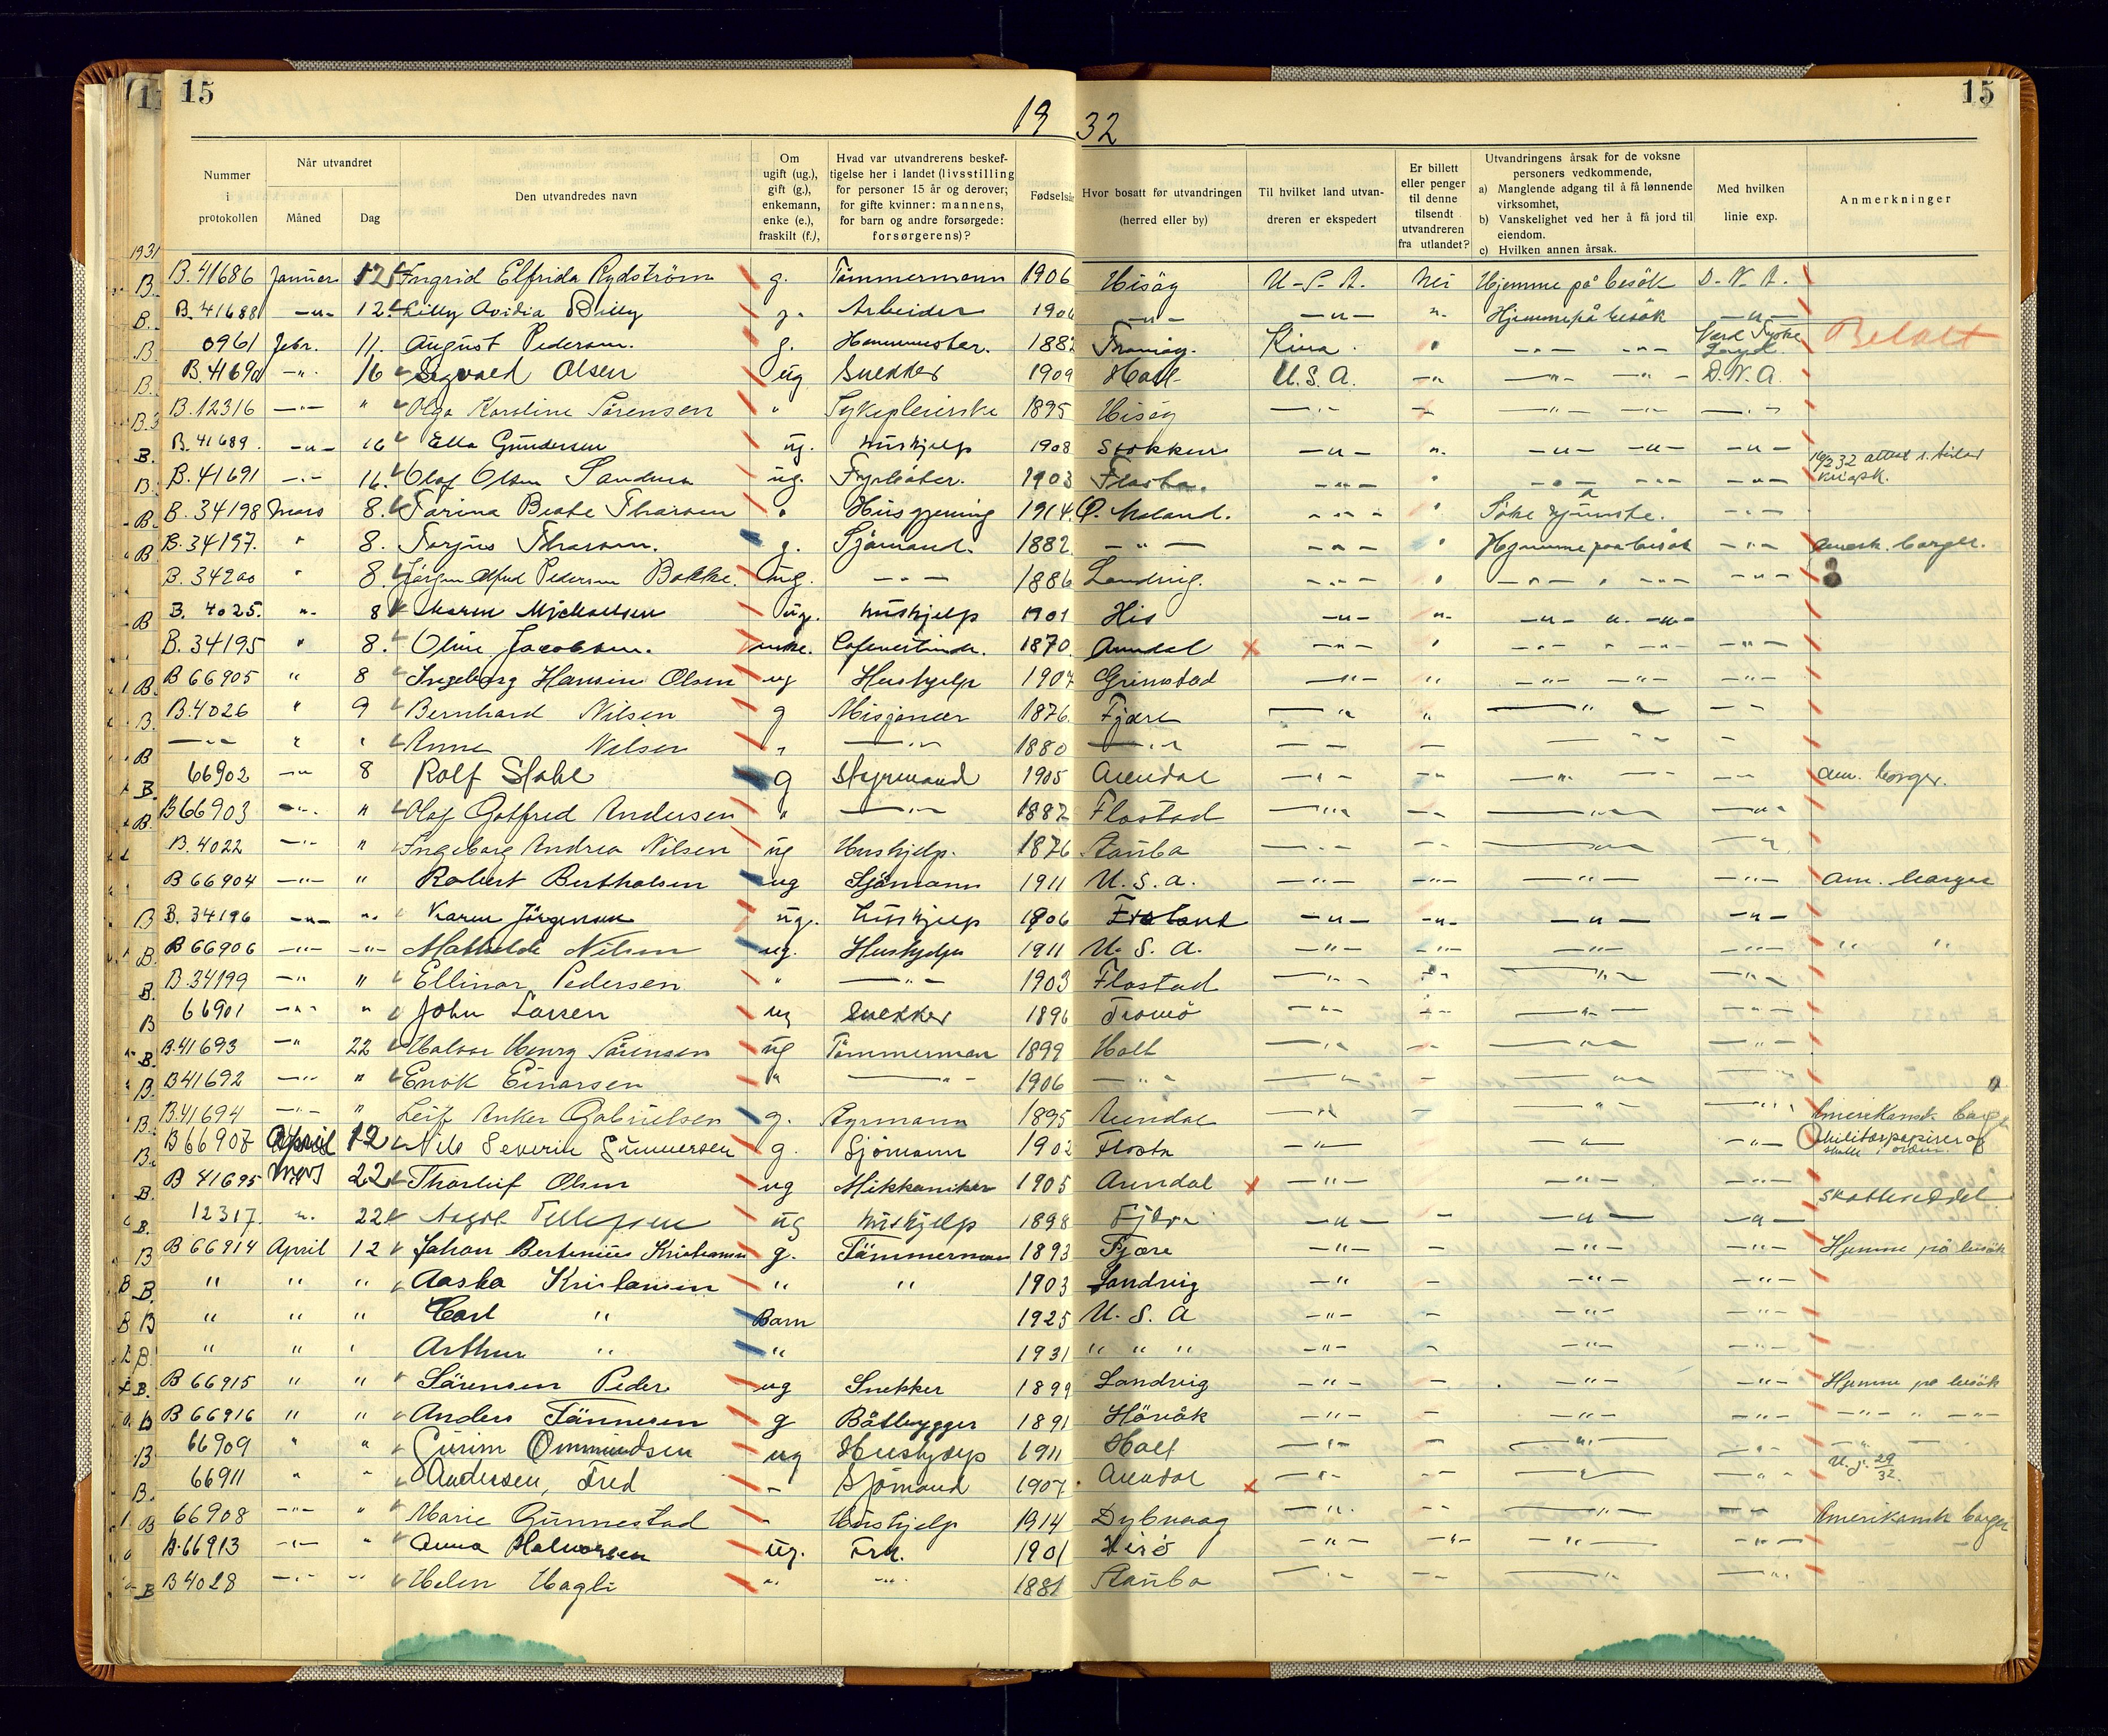 15
15
19 32
Nummer i protokollen
Når utvandret
Måned
Dag
Den utvandredes navn
Om ugift (ug.), gift (g.), enkemann, enke (e.), fraskilt (f.),
Hvad var utvandrerens beskeftigelse her i landet (livsstilling for personer 15 år og derover; for gifte kvinner: mannens, for barn og andre forsørgede: forsørgerens)?
Fødselsår
Hvor bosatt før utvandringen (herred eller by)
Til hvilket land utvandreren er ekspedert
Er billett eller penger til denne tilsendt utvandreren fra utlandet?
Utvandringens årsak for de voksne personers vedkommende,
a) Manglende adgang til å få lønnende virksomhet,
b) Vanskelighet ved her å få jord til eiendom.
c) Hvilken annen årsak.
Med hvilken linie exp.
Anmerkninger
1931
B. B. 41686 Januar 12 Ingrid Elfrida Rydström g. Tömmermann 1906 Hisöy U.S.A. Nei Hjemme på besök D.N.A.
B. B. 41688 -"- 12. Lilly Ovidia g. Arbeider 1906 -"- -"- "- Hjemme på besök -"-
B. 0961 Febr. 11. August Pedersen. g. 1882 Tromöy. Kina. " -"- -"- Betalt
B. B. 41690 -"- 16 Sigvald Olsen ug Snekker 1909 Holt U.S.A. -"- -"- -"- D.N.A.
B. B. 12316 -"- " Olga Karoline Sörensen " Sykepleierske 1895 Hisöy -"- -"- -"- -"-
B. B. 41689. -"- 16 Ella Gundersen ug. hushjelp 1908 Stokken -"- "- -"- -"- -"-
B. B. 41691 -"- 16. Olaf Olsen ug. Fyrböter. 1903 Flosta. -"- " -"- -"- -"-
B. B. 34198 Mars 8. Beate " 1914. Ö. Moland. -"- " Söke hyrinste. -"-
B B. 34197. " 8. g. Sjömand. 1882. -"- -"- " Hjemme paa besök -"- amerk. borger.
B. 34200 " 8. Jörgen Alfred Pedersen Bakke. ug. -"- 1886 Landvig. -"- " -"- -"- -"-
B B. 4025. "- 8 Karen Mickaelsen ug. hushjelp 1901 His -"- "- -"- "- -"-
B. 34195 " 8. Oline Jacobsen. enke. 1870. Arendal x -"- " -"- -"- -"-
B. B 66905 " 8 Ingeborg Hansine Olsen ug Hushjelp 1907 Grimstad -"- " -"- -"- -"-
B. B. 4026 " 9 Bernhard Nilsen g Misjonær 1876. Fjære -"- " -"- -"-
B -"- " " Anna Nilsen " -"- 1880 -"- -"- - -"- -
B. 66902 -"- 8 Rolf Stahl g Styrmand 1905 Arendal -"- -"- -"- -"- -"- am. borger.
B. B66903 -"- " Olaf Gotfred Andersen " -"- 1887 Flostad -"- -"- -"- -"-
B. 4022 -"- " Ingeborg Andrea Nilsen ug Hushjelp. 1876 -"- -- -"- -"-
B 66904 -"- " Robert Bertholsen ug Sjömann 1911 U.S.a. -"- -"- -"- -"- Am. borger
B B. 34196 -"- "- Karen Jörgensen ug. hushjelp 1906 Froland -"- -"- -"- -"-
B. B 66906 -"- -"- Mathilde Nilsen ug. Hushjelp 1911 U.S.A. -"- -"- -"- -"- " "
B. B. 34199 -"- " Ellinor Pedersen " -"- 1903 Flostad -"- -"- -"- -"-
B 66901 -"- " John Larsen ug Snekker 1896 Tromö -"- -"- -"- -"-
B. B. 41693 -"- 22 Halvor Henry Sörensen ug Tömmerman 1899 Holt -"- - -"- -"-
B. B41692 -"- " Enok Einarsen " -"- 1906 -"- -"- - -"- -"-
B. B. 41694 -"- " Leif Anker Gabrielsen g. Styrmann 1895 Arendal -"- - -"- -"- Amerikansk borger
B. B 66907 April 12 Nils Severin Gunnersen g. Sjömann 1902 Flosta -"- - -"- -"- Militærpapirer og skatt i orden.
B. B 41695 Mars 22 Thorleif Olsen ug Mikkaniker 1905 Arendal x -"- -"- -"-
B. 12317. "- 22 ug hushjelp 1898 Fjære -"- - -"- -"- skatteseddel
B B 66914 April 12 Johan Bertinius Kristiansen g. Tömmerman 1893 Fjære -"- - -"- -"- Hjemme på besök
B B. " " " Aasta Kristiansen " " 1903 Landvig -"- - -"- -"-
B B " " " Carl " Barn 1925 U.S.A -"- - -"- -"-
B. " " " Arthur " " 1931 " " " -"- - -"- -"-
B. B 66915 " " Sörensen Peder ug Snekker 1899 Landvig -"- - -"- -"- Hjemme på besök
B B 66916 " " Anders Tönnesen g Båtbygger 1891 Hövåk -"- - -"- -"- -"- " -"-
B 66909 " " Ommundsen ug Hushjelp 1911 Holt -"- - -"- -"- -"-
B. 66911 " " Andersen, Fred - Sjömand 1907. Arendal x -"- - -"- -"-
B 66908 -"- " Marie Gunnestad - Hushjelp 1914 Dybvaag -"- -- -"- -- Amerikansk borger
B. 66913 -"- " Anna Halvorsen ug. Frk. 1901 Hisö -"- -"- -"- -"-
B B 4028 -"- -"- Helen Hagli " -"- 1881 -"- -- -"- -"-